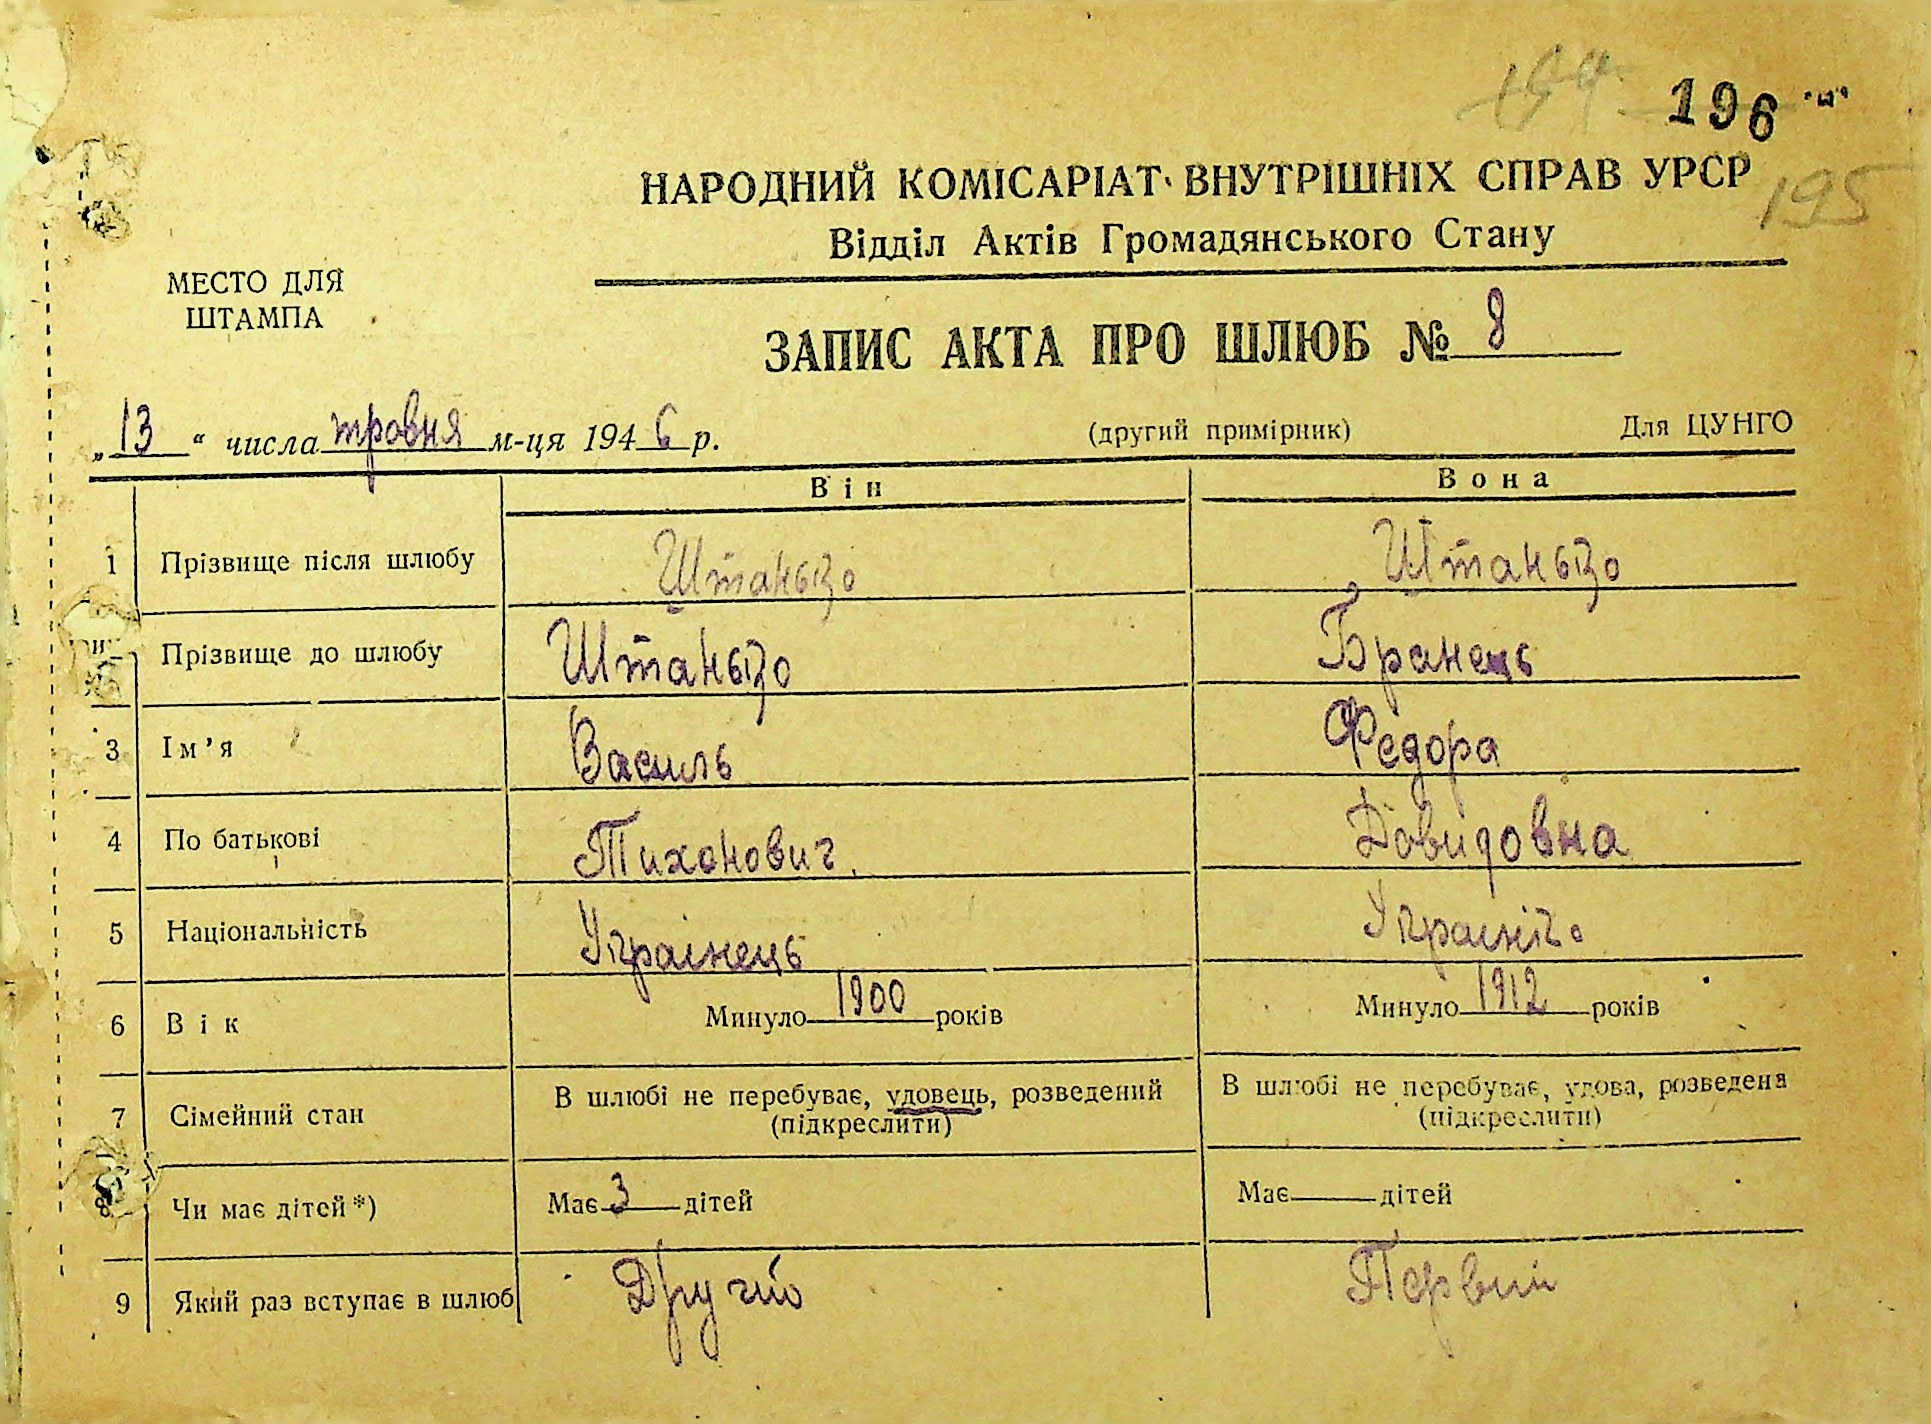 194 196 "и"
НАРОДНИЙ КОМІСАРІАТ ВНУТРІШНІХ СПРАВ УРСР 195
Відділ Актів Громадянського Стану
МЕСТО ДЛЯ
ШТАМПА
ЗАПИС АКТА ПРО ШЛЮБ № 8
„13“ числа травня м-ця 1946 р. (другий примірник) Для ЦУНГО
Він Вона
1 Прізвище після шлюбу Штанько Штанько
Прізвище до шлюбу Штанько Бранець
3 Ім'я Василь Федора
4 По батькові Тихонович Довидовна
5 Національність Украінець Украінка
6 Вік Минуло 1900 років Минуло 1912 років
7 Сімейний стан В шлюбі не перебуває, удовець, розведений (підкреслити) В шлюбі не перебуває, удова, розведена (підкреслити)
8 Чи має дітей*) Має 3 дітей Має дітей
9 Який раз вступає в шлюб Другий Первий